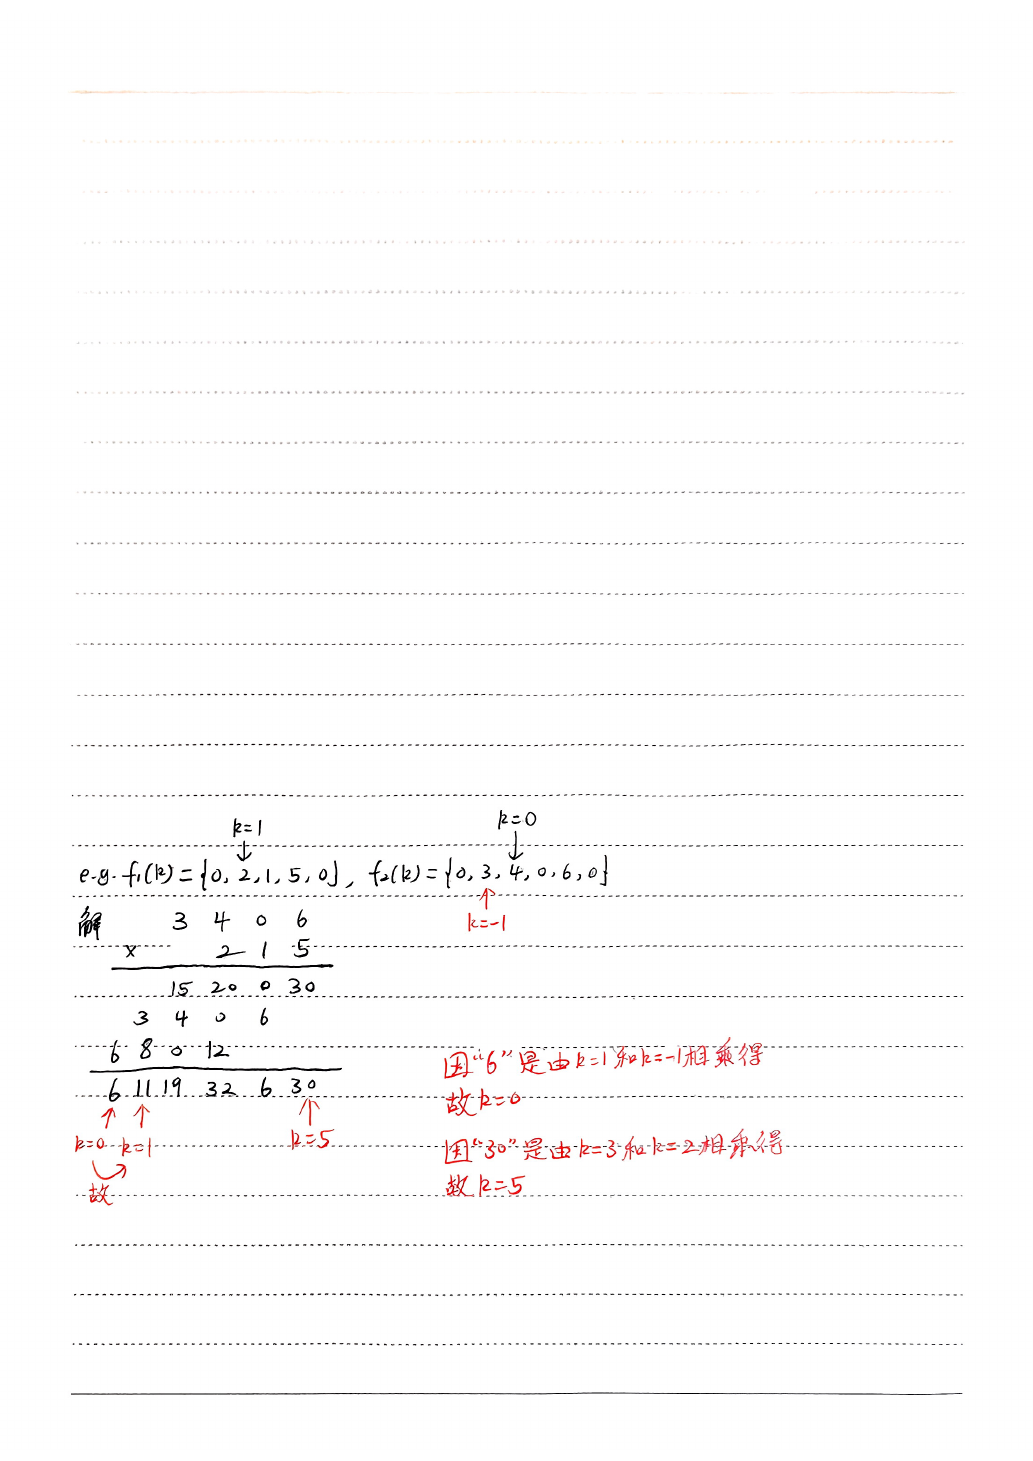 k=1
k=0
e.g. f₁(k)={0, 2, 1, 5, 0}, f₂(k)={0, 3, 4, 0, 6, 0}
k=-1
解 3 4 0 6
× 2 1 5
15 20 0 30
3 4 0 6
6 8 0 12
6 11 19 32 6 30
k=0 k=1 k=5
故
因“6”是由k=1和k=-1相乘得
故k=0
因“30”是由k=3和k=2相乘得
故k=5